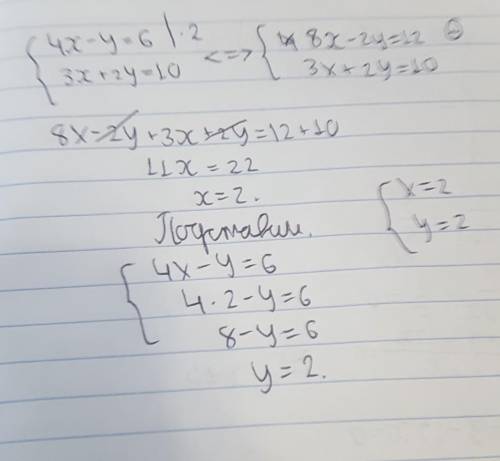 4x-y=6 |·2 <=> 8x-2y=12
3x+2y=10 3x+2y=10
8x-2y+3x+2y=12+10
11x=22
x=2.
Подставим.
4x-y=6
4·2-y=6
8-y=6
y=2.
x=2
y=2